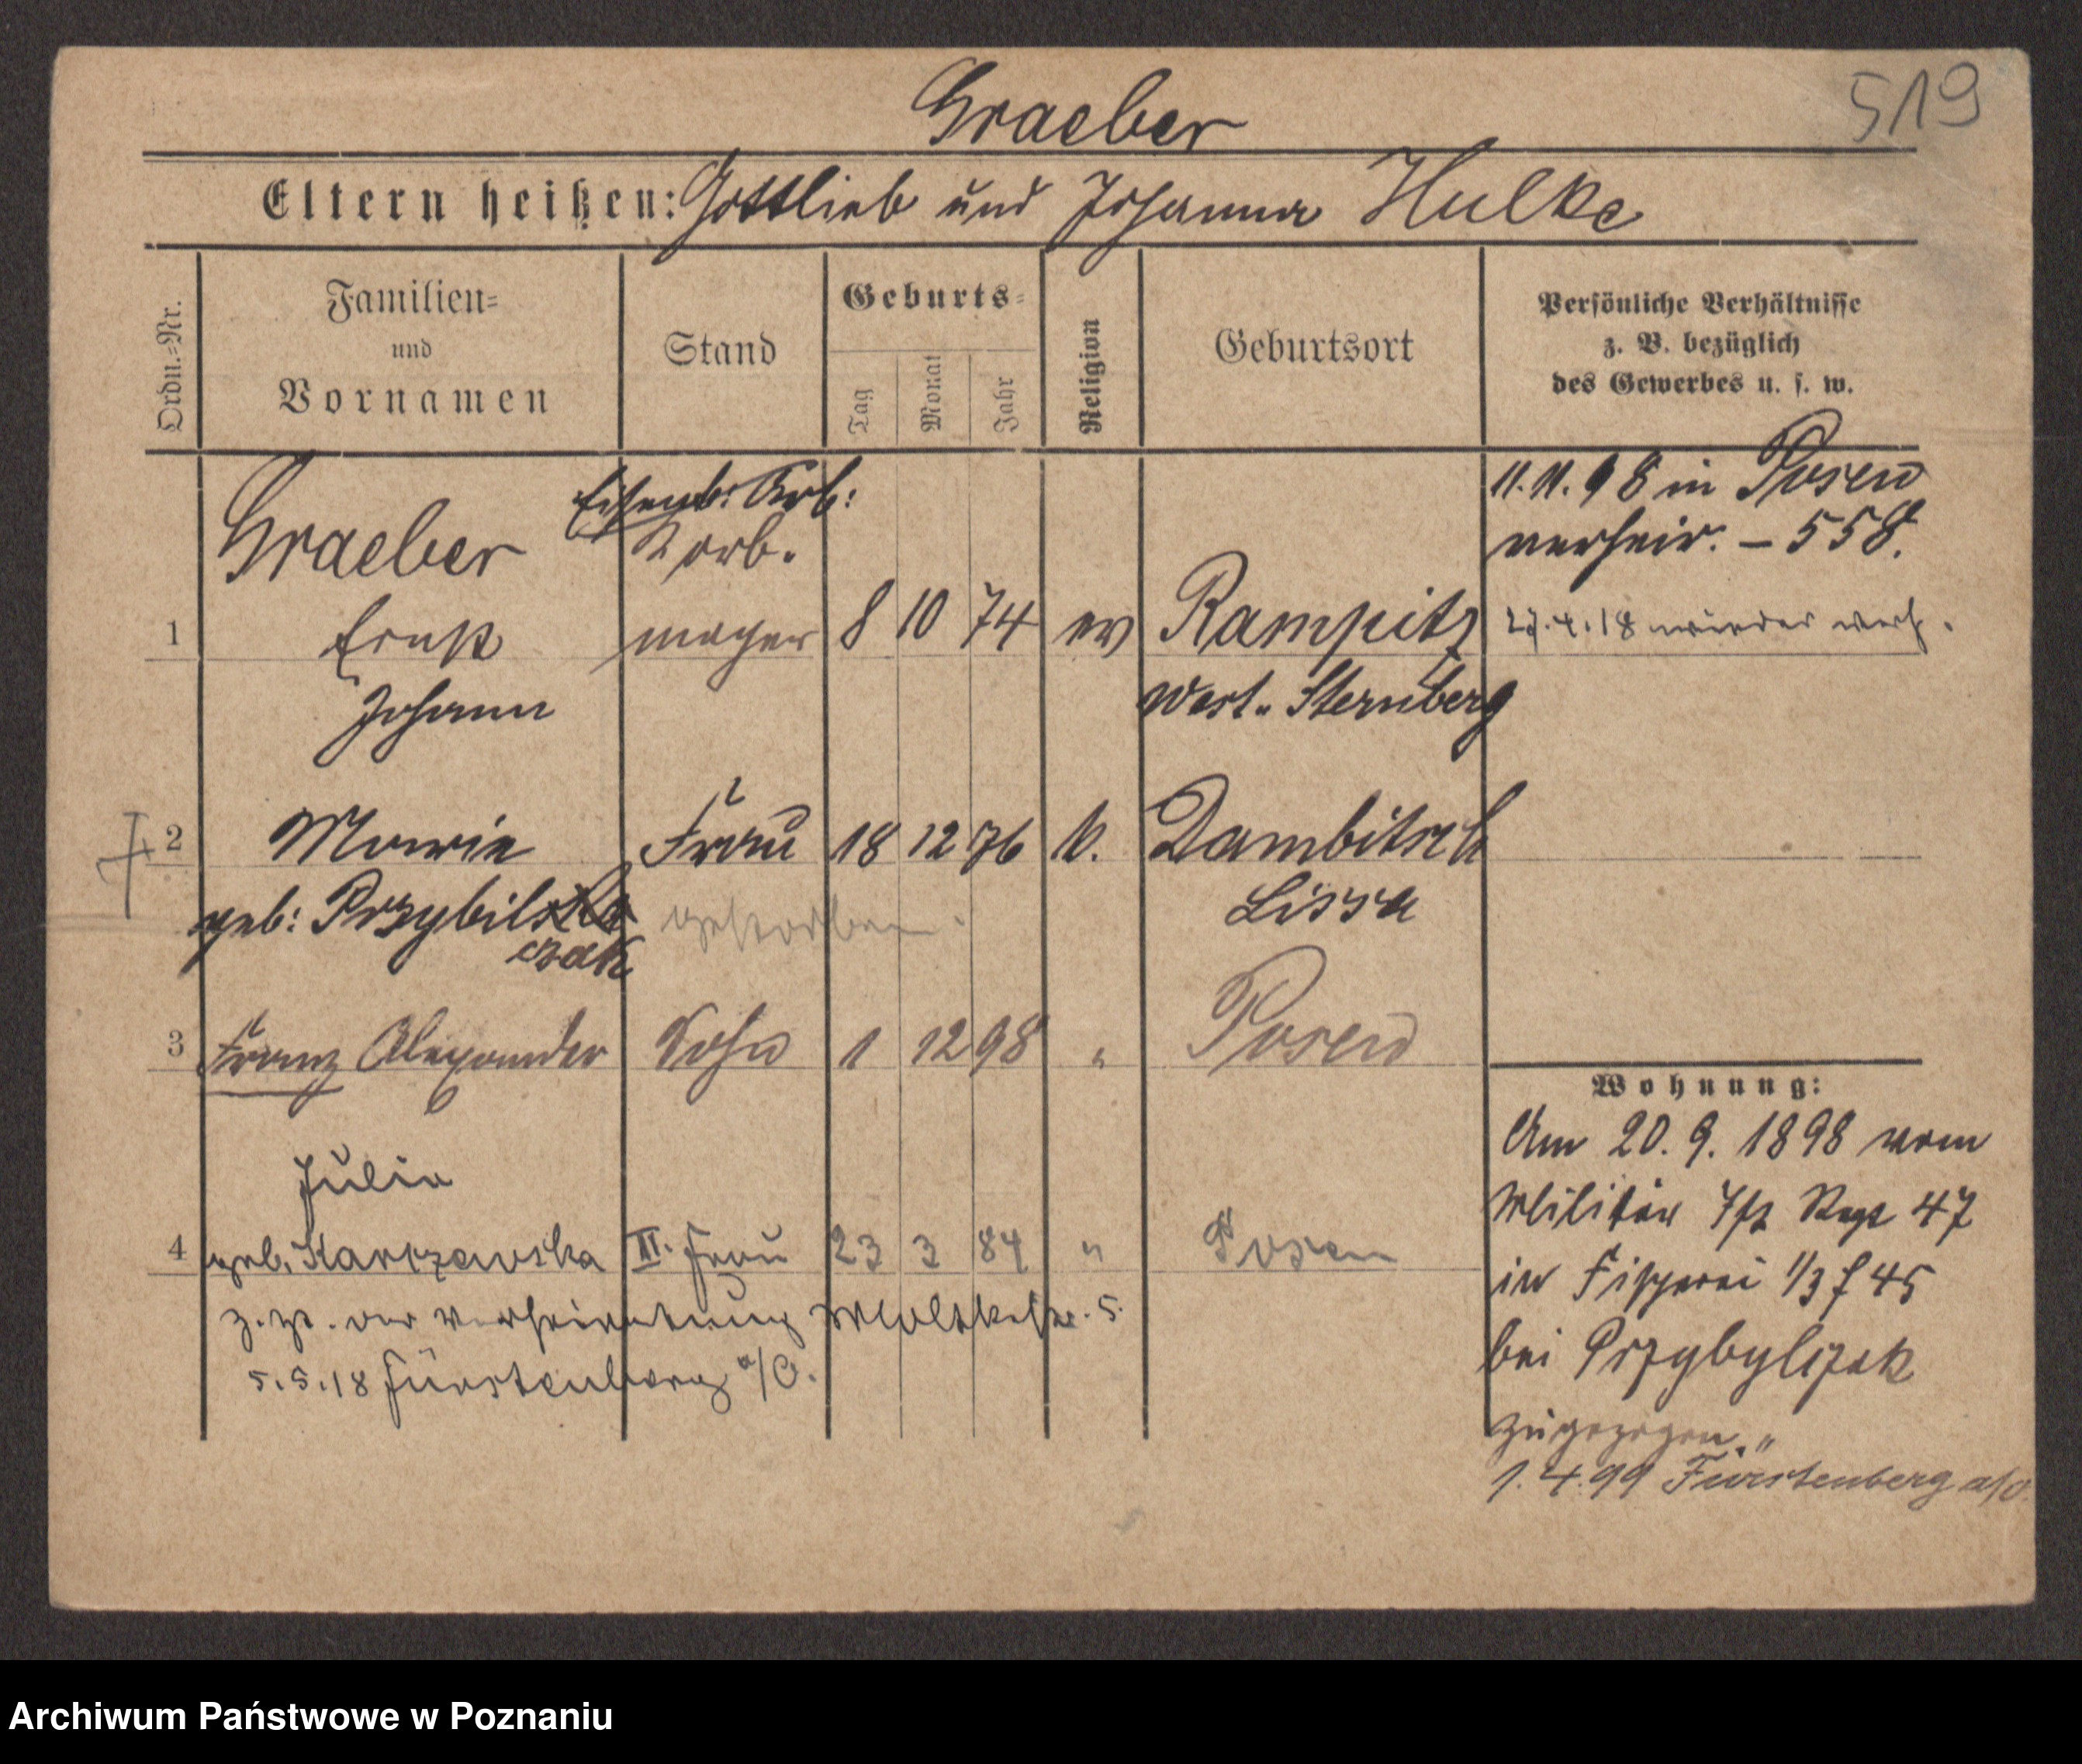 519
Graeber
Eltern heißen: Gottlieb und Johanna Hulke
Ordn.-Nr.
Familien- und Vornamen
Stand
Geburts-
Tag
Monat
Jahr
Religion
Geburtsort
Persönliche Verhältnisse
z. B. bezüglich
des Gewerbes u. s. w.
Eisenb. Arb:
11.11.98 in Posen
Graeber
Korb.
verheir. – 558.
1 Ernst macher 8 10 74 ev Rampitz 27.4.18 wieder verh.
Johann
West-Sternberg
2 Marie Frau 18 12 76 k. Dambitsch
geb: Przybilska gestorben. Lissa
czak
3 Franz Alexander Sohn 1 12 98 " Posen
Wohnung:
Am 20. 9. 1898 vom
Militär Rgt 47
Julia
4 geb. Karczewska II. Frau 23 3 84 " Posen
in Fischerei 1/3 f 45
z. Zt. der Verheiratung Moltkestr. 5.
bei Przybylczak
5.5.18 Fürstenberg a/O.
zugezogen."
1.4.99 Fürstenberg a/O.
Archiwum Państwowe w Poznaniu